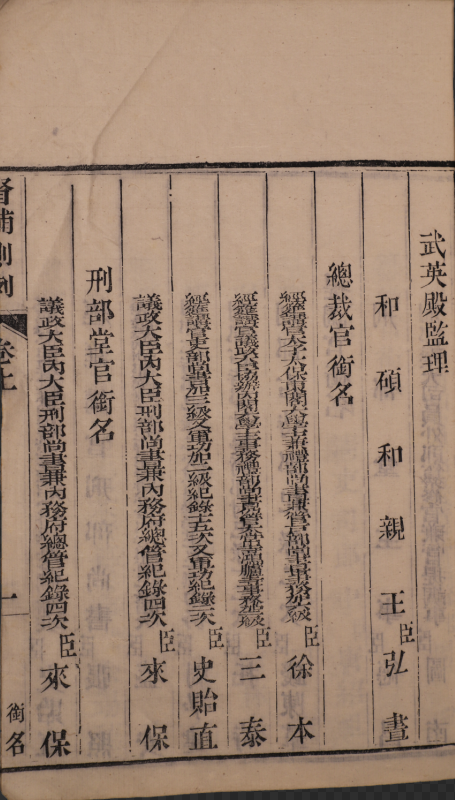 武英殿監理
和碩和親王臣弘晝
總裁官銜名
經筵講官太子太保東閣大學士兼禮部尚書兼管吏部尚書事務加二級臣徐本
經筵講官議政大臣協辦內閣大學士事務禮部尚書兼管太常寺鴻臚寺事務加二級臣三泰
經筵講官吏部尚書加三級又軍功加二級紀錄十五次又軍功紀錄三次臣史貽直
議政大臣內大臣刑部尚書兼內務府總管紀錄四次臣來保
刑部堂官銜名
議政大臣內大臣刑部尚書兼內務府總管紀錄四次臣來保
督捕則例
卷上
一
銜名